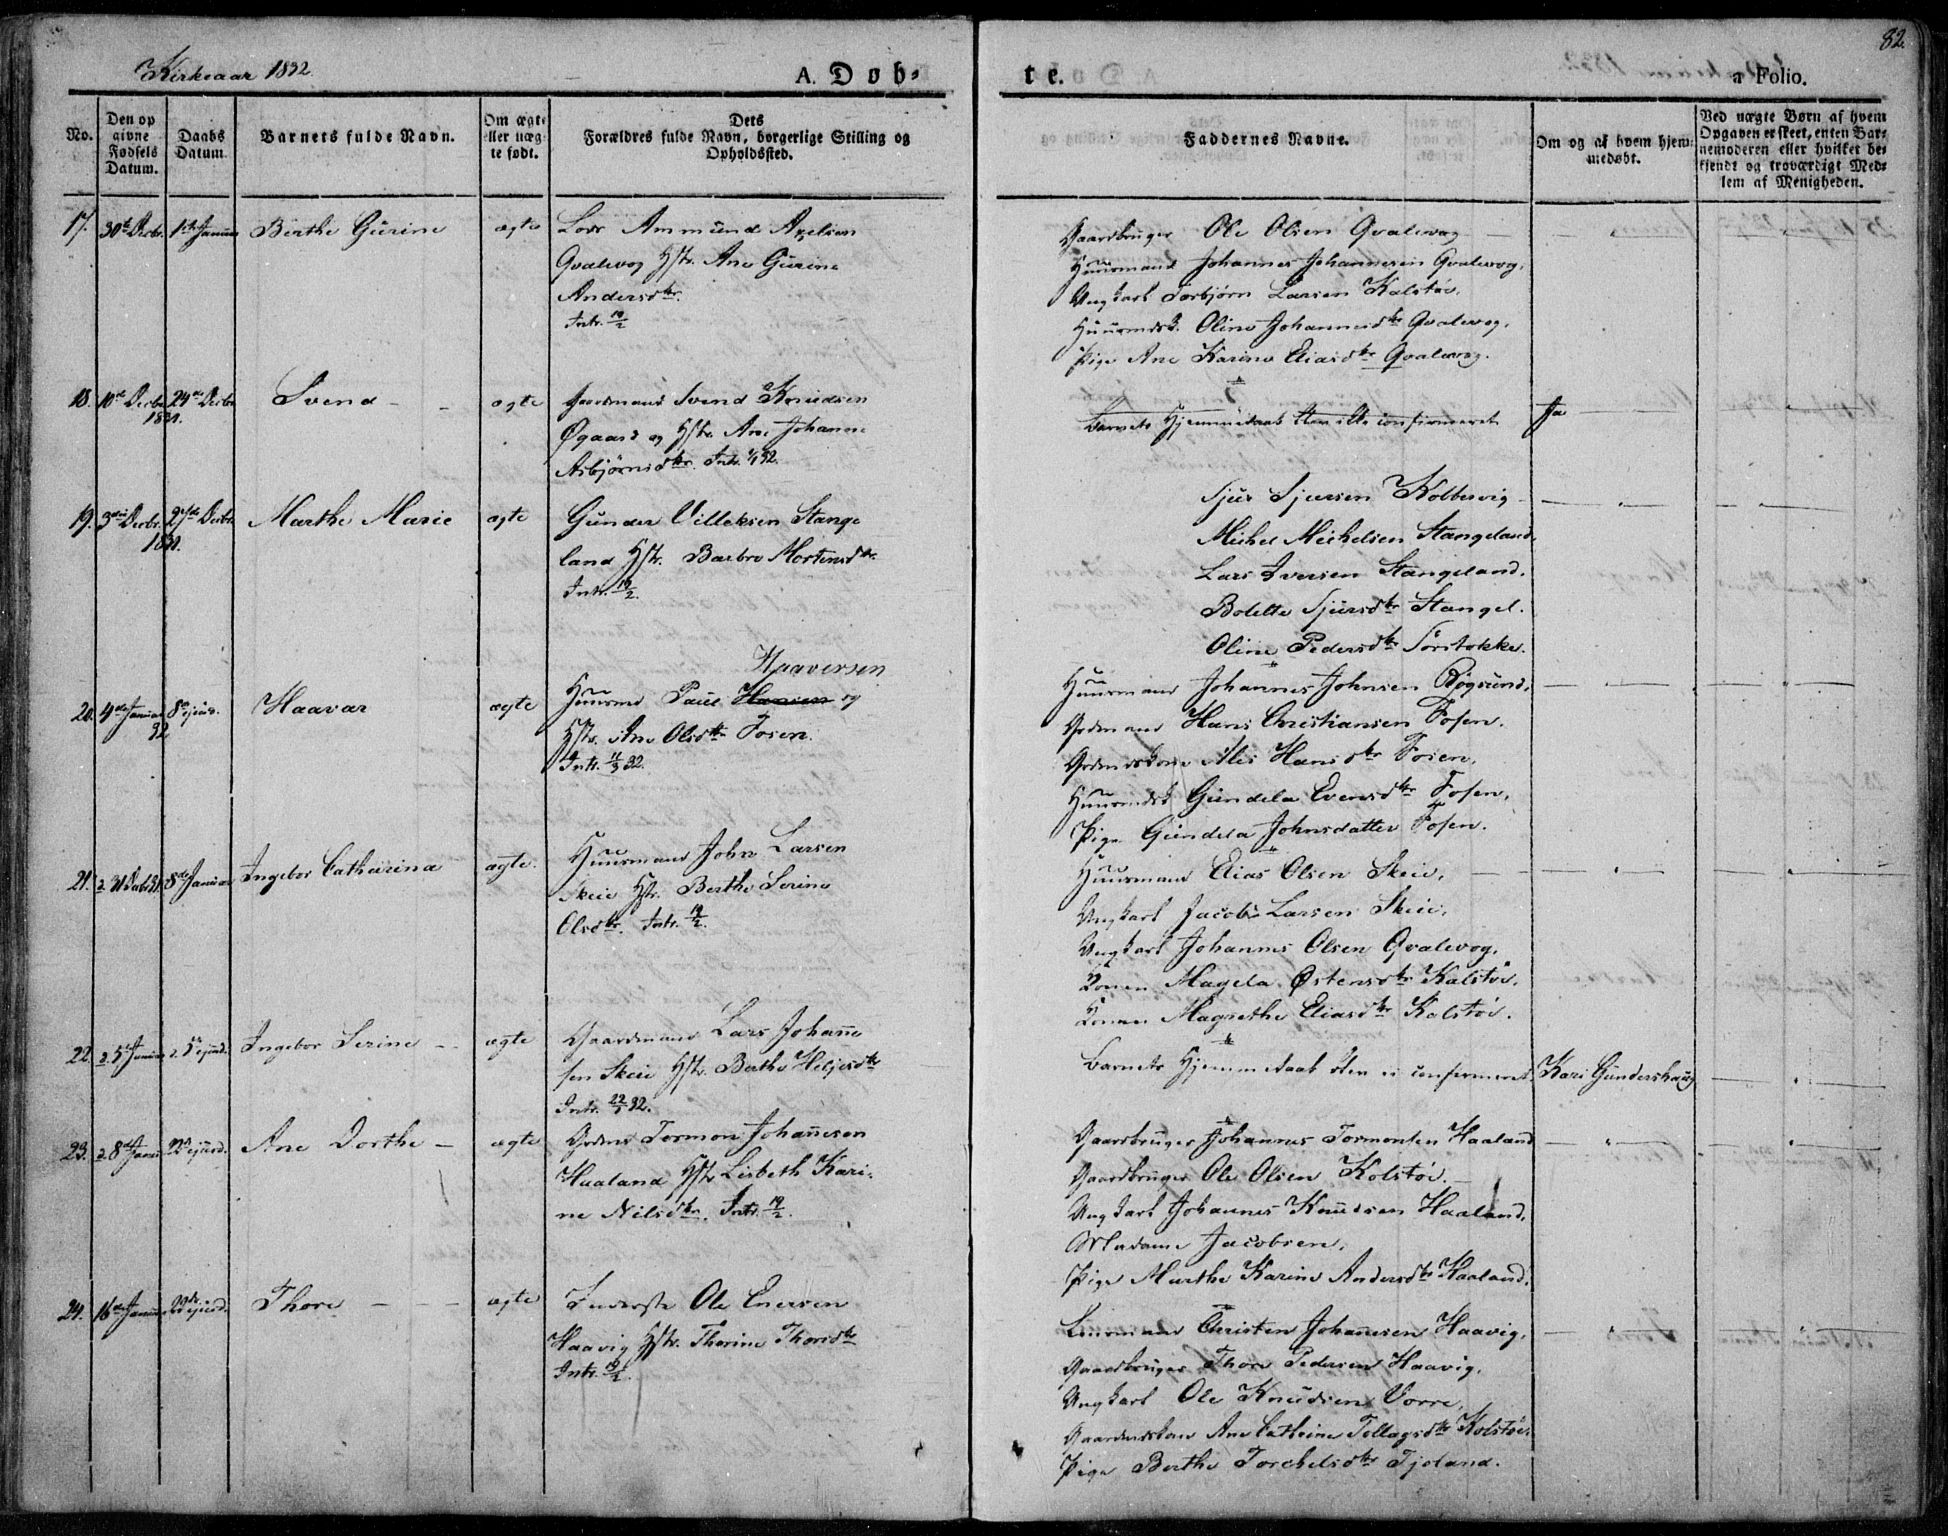 Kirkeaar 1832
A. Døb-
te.
a Folio.
82.
No.
Den op
givne
Fødsels
Datum.
Daabs
Datum.
Barnets fulde Navn.
Om ægte
eller uæg-
te født.
Dets
Forældres fulde Navn, borgerlige Stilling og
Opholdssted.
Faddernes Navne.
Om og af hvem hjem-
medøbt.
Ved uægte Børn af hvem
Opgaven er skeet, enten Bar-
nemoderen eller hvilket be-
kjendt og troværdigt Med-
lem af Menigheden.
17. 30te Decbr. 1ste Januar Berthe Gurine ægte Lods Ammund Axelsen
Qvalevog Hstr. Ane Gurine
Andersdtr.
Intr. 19/2
Gaardbruger Ole Olsen Qvalevog
Huusmand Johannes Johannesen Qvalevog.
Ungkarl Torbjørn Larsen Kalstøe.
Huusmdsk. Oline Johannesdtr Qvalevog.
Pige Ane Karine Eliasdtr Qvalevog.
18. 10de Decbr 1831. 24de Decbr Svend ægte Gaardmand Svend Knudsen
Øgaard og Hstr. Ane Johanne
Asbjørnsdtr. Intr. 32.
Barnets Hjemmedaab blev ikke confirmeret Ja
19. 3die Decbr. 1831. 27de Decbr Marthe Marie ægte Gunder Villeksen Stange
land Hstr. Barbro Mortensdtr.
Intr. 19/2.
Sjur Sjursen Kolbevig
Michel Michelsen Stangeland.
Lars Iversen Stangeland.
Bolette Sjursdtr Stangel.
Oline Pedersdtr Sørstokke.
20. 4de Januar 32. 8de ejusd. Haavar ægte Huusmd Paul Hansen og
Haaversen
Hstr. Ane Olsdtr Fosen.
Intr. 11/3 32.
Huusmand Johannes Johnsen Røgsund.
Grdmand Hans Christiansen Fosen.
Grdmdskone Ales Hansdtr Fosen.
Huusmdsk Gundela Evensdtr Fosen.
Pige Gundela Johnsdatter Fosen.
21. d. 31 Decbr 31. 8de Januar Ingebor Catharina ægte. Huusmand John Larsen
Skeie Hstr. Berthe Serine
Olsdtr. Intr. 19/2.
Huusmand Elias Olsen Skeie.
Ungkarl Jacob Larsen Skeie.
Ungkarl Johannes Olsen Qvalevog.
Konen Magela Østensdtr Kalstøe.
Konen Magrethe Eliasdtr Kalstøe.
22. d. 5te Januar d. 5te ejusd. Ingebor Serine ægte Gaardmand Lars Johanne
sen Skeie Hstr. Berthe Heljesdtr
Intr. 22/1 32.
Barnets Hjemmedaab blev ei confirmeret. Kari Gundershaug
23. d. 8de Janu ejusd. Ane Dorthe ægte Grdmd Tormon Johannesen
Haaland Hstr Lisbeth Kari-
ne Nilsdtr. Intr. 19/2.
Gaardbruger Johannes Tormonsen Haaland
Gaardbruger Ole Olsen Kolstøe.
Ungkarl Johannes Knudsen Haaland.
Madame Jacobsen.
Pige Marthe Karine Andersdtr Haaland.
24. 16de Januar ejusd. Thore ægte Inderste Ole Enersen
Haavig Hstr. Thorine Thorsdtr
Intr. 19/2.
Christen Johannesen Haavig.
Gaardbruger Thore Pedersen Haavig.
Ungkarl Ole Knudsen Vorre.
Gaardmdskone Ane Cathrine Tollagsdtr Kolstøe.
Pige Berthe Torchelsdtr Tjoland.